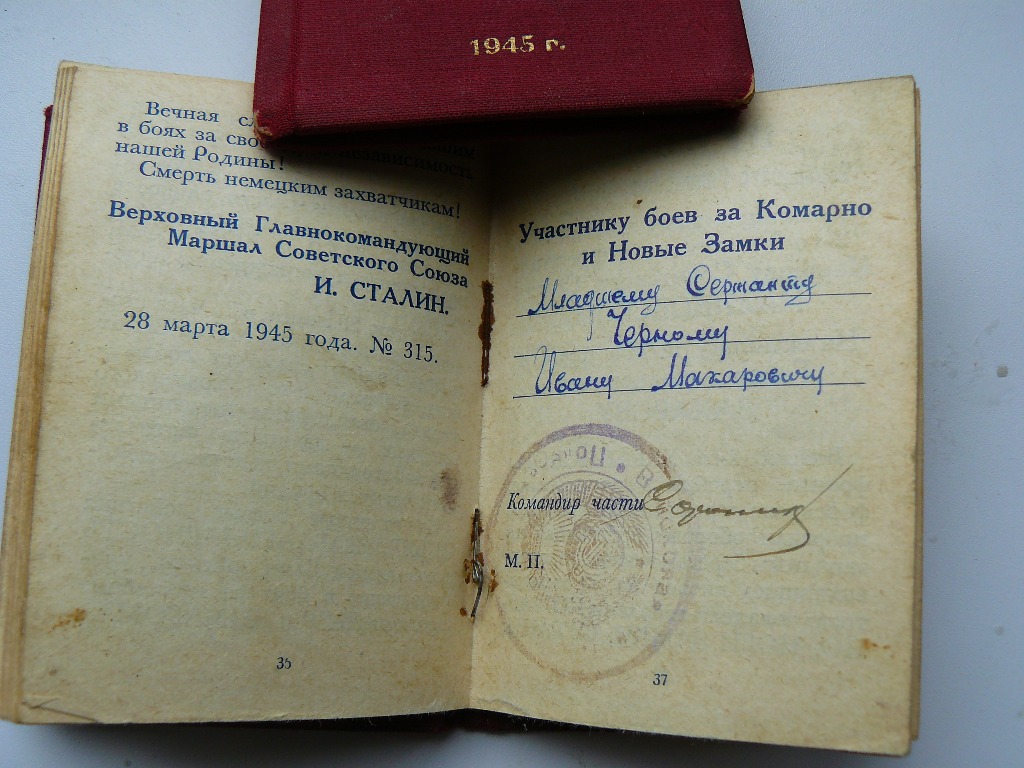 1945 г.
Вечная
в боях за независимость
нашей Родины!
Смерть немецким захватчикам!
Верховный Главнокомандующий
Маршал Советского Союза
И. СТАЛИН.
28 марта 1945 года. № 315.
36
Участнику боев за Комарно
и Новые Замки
Младшему Сержанту
Черному
Ивану Макаровичу
Командир части
М. П.
37